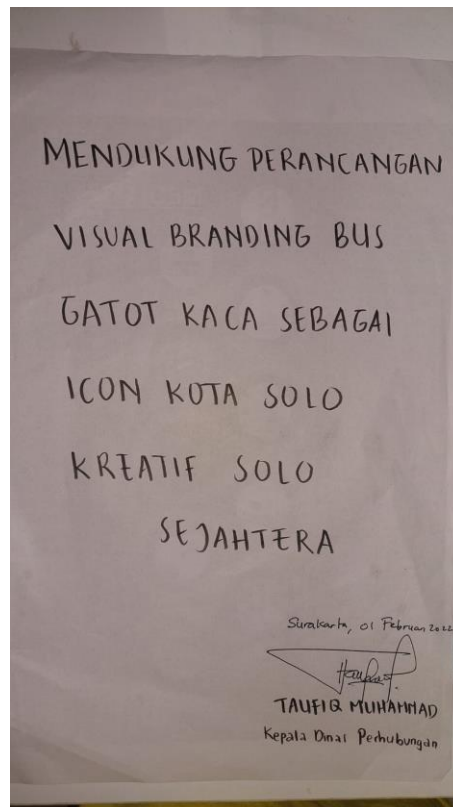 MENDUKUNG PERANCANGAN
VISUAL BRANDING BUS
GATOT KACA SEBAGAI
ICON KOTA SOLO
KREATIF SOLO
SEJAHTERA
Surakarta, 01 Februari 2022
TAUFIQ MUHAMMAD
Kepala Dinas Perhubungan